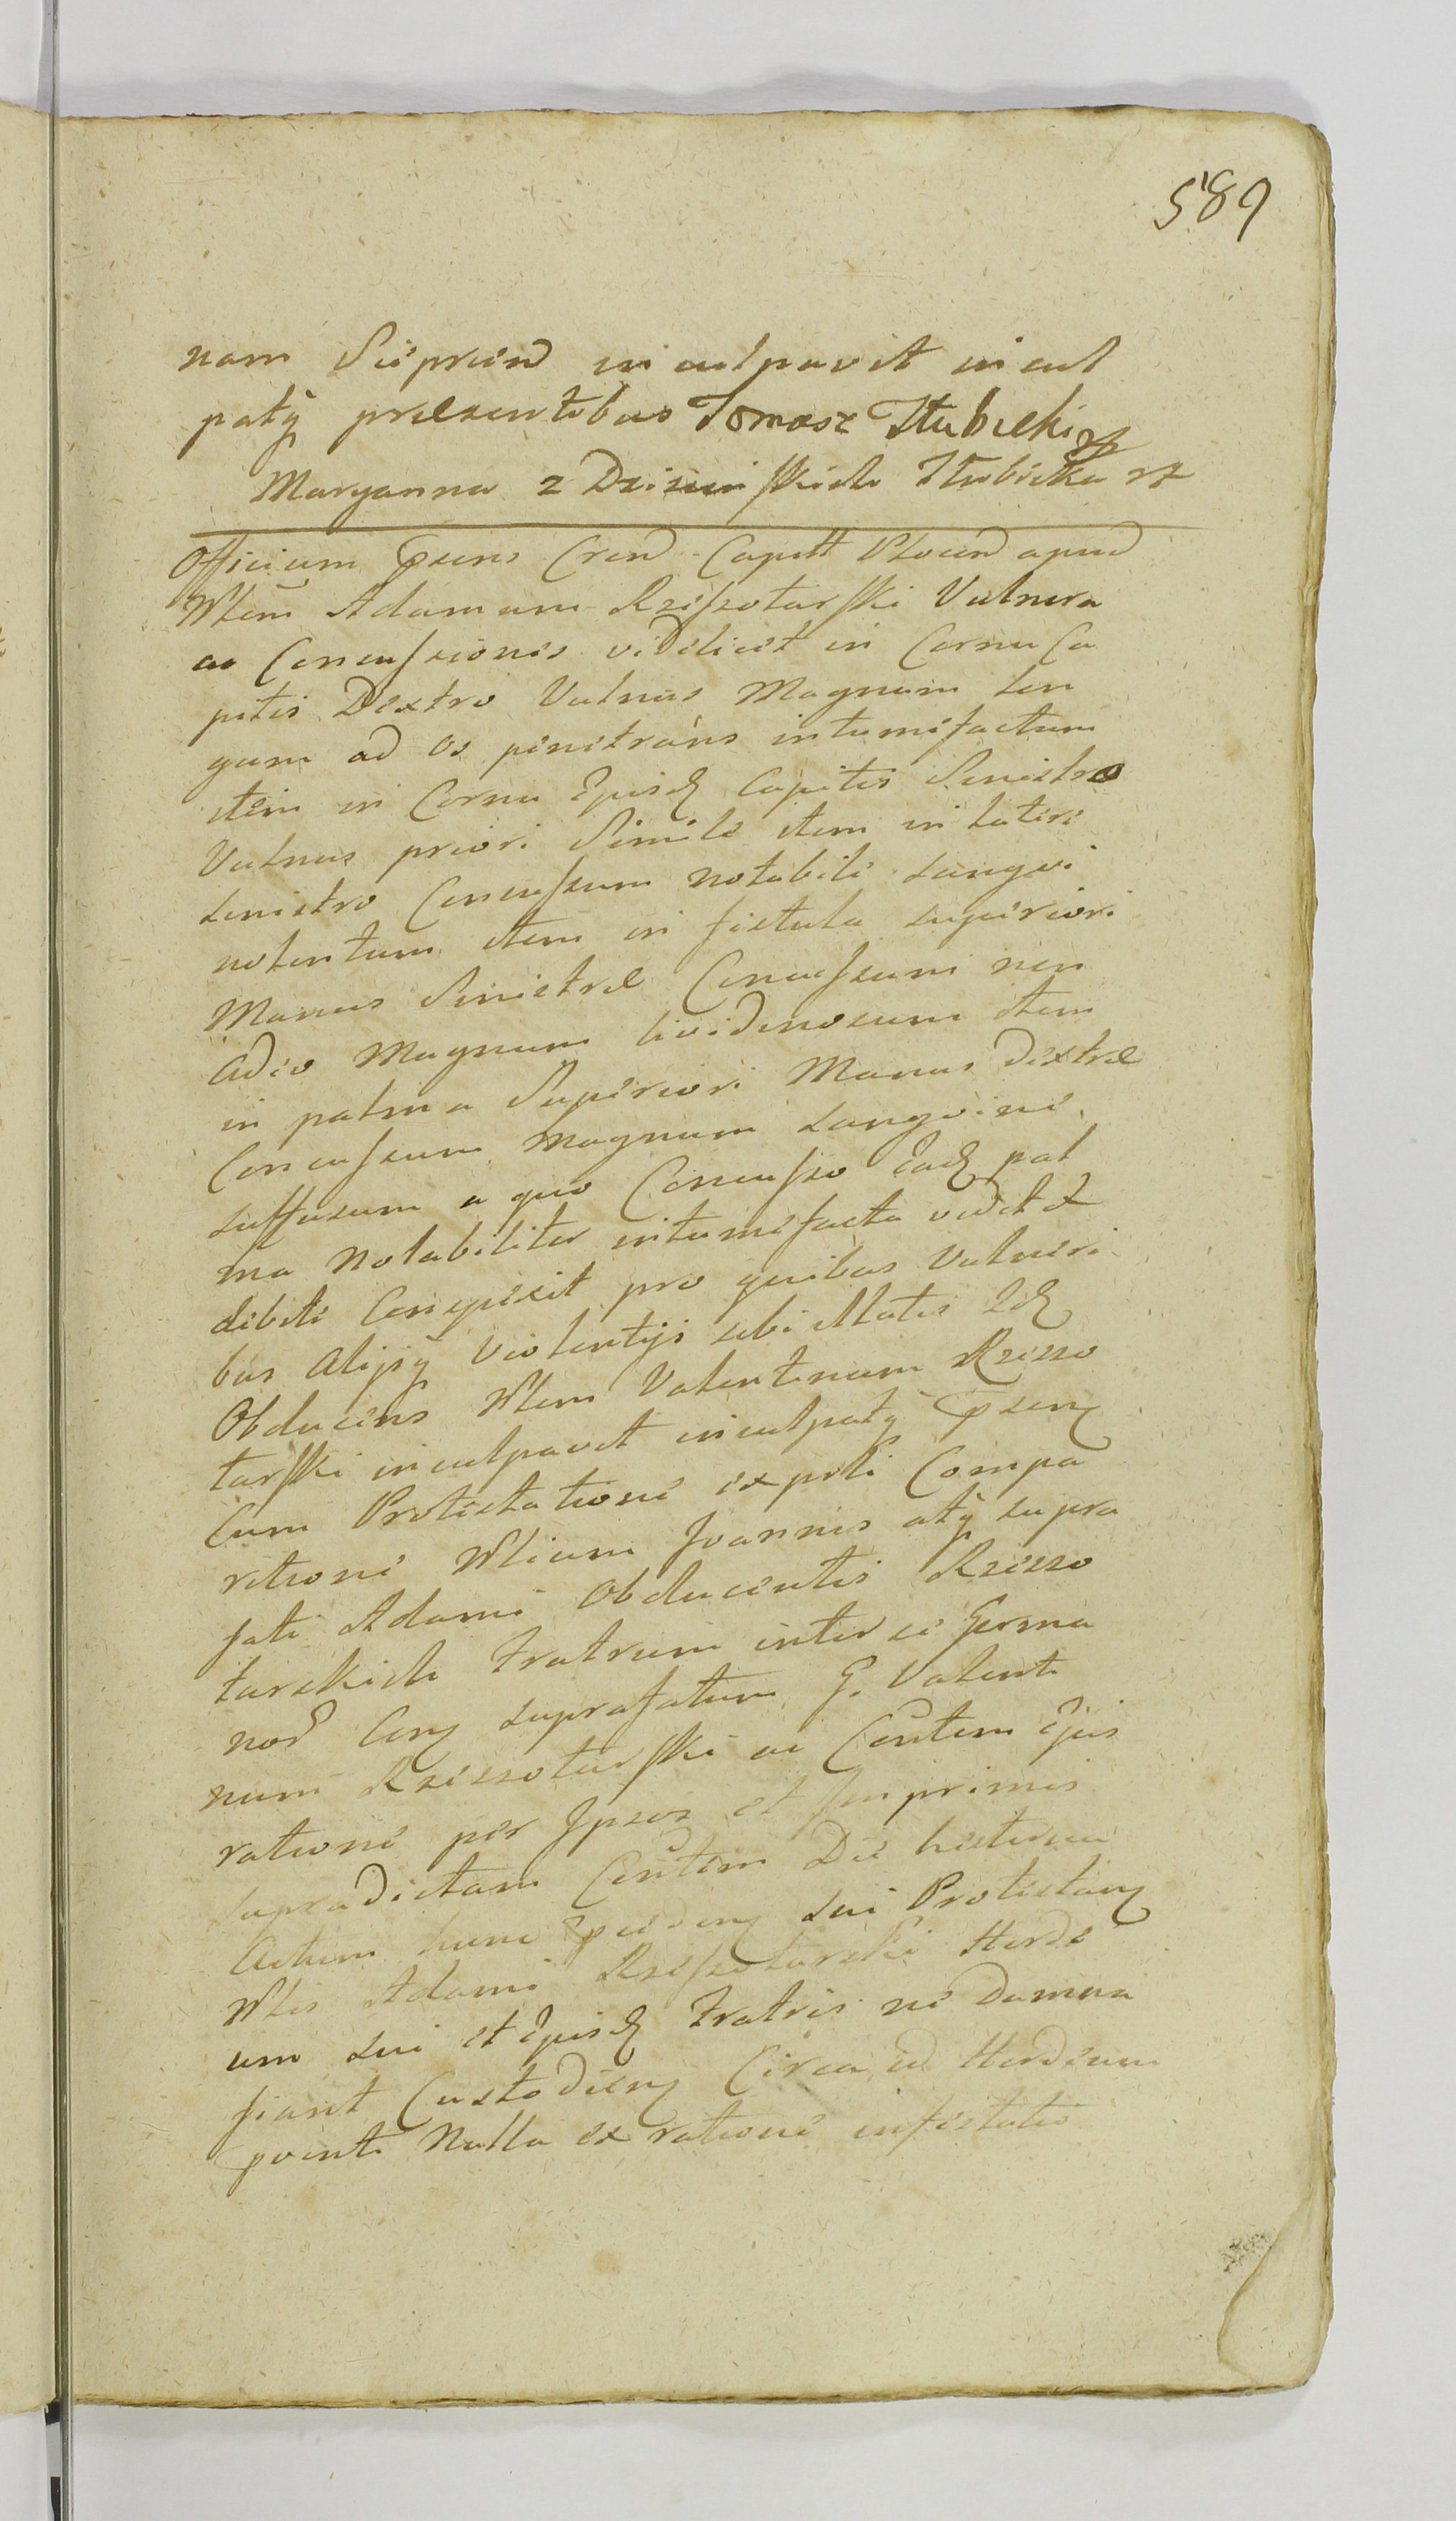 589
nam Sieprcien inculpavit incul
patq praesentibus Tomasz Hłubicki
Maryanna z Dzi skich Hłubicka
Officium Castrense Capitt Plocen apud
Nblem Adamum Rzeszotarski Vulnera
ac Concussiones videlicet in Cornu Ca
pitis Dextro Vulnus Magnum lon
gum ad os penetrans intumefactum
item in Cornu Ejusd Capitis Sinistro
Vulnus priori Simile item in latere
sinistro Concussum notabile sangvi
nolentum item in fistula superiori
Manus Sinistrae Concussum non
adeo Magnum lividinosum item
in palma Superiori Manus Dextrae
Concussum magnum sangvine
suffusum a quo Concusso ead pal
ma notabiliter intumefacta vidit et
debite Conspexit pro quibus Vulneri
bus alijsq violentijs sibi illatis Id
Obducens Nblem Valentinum Rzeszo
tarski inculpavit inculpatq
Cum Protestatione ex parte Compa
ritione Nblium Joannis atq supra
fati Adami Obducentis Rzeszo
tarskich Fratrum inter se Germa
nor Con suprafatum G. Valenti
num Rzeszotarski ac Contem Ejus
ratione per Ipsos et Imprimis
supradictam Contem Die hesterna
Actum hunc sui Protestan
Nblis Adami Rzeszotarski Horde
um sui et Ejusd Fratris ne Damna
fiant Custodien Circa id Hordeum
nulla ex ratione infestatio